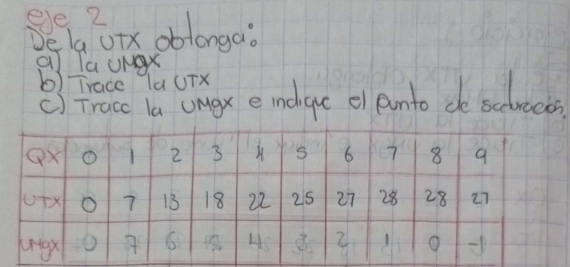 eje 2
De la UTX obtonga:
a) la UMgx
b) Trace la UTX
c) Trace la UMgx e indique el punto de saturación.
QX 0 1 2 3 4 5 6 7 8 9
UTX 0 7 13 18 22 25 27 28 28 27
UMgX 0 7 6 5 4 3 2 1 0 -1